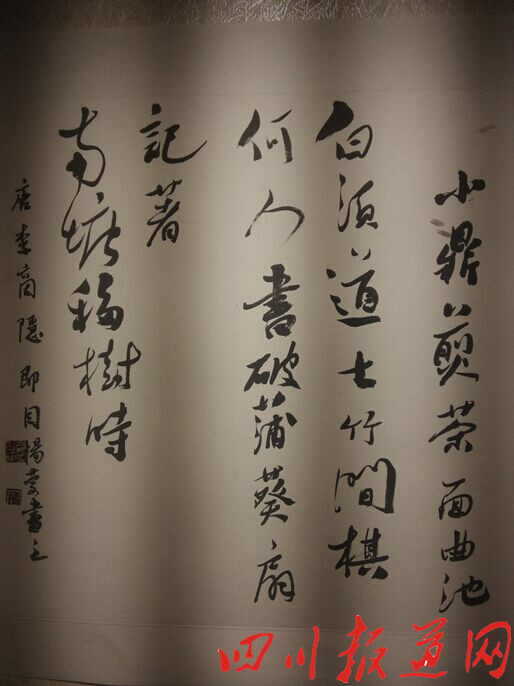 小鼎煎茶面曲池
白須道士竹間棋
何人書破蒲葵扇
記著
南塘移樹時
唐李商隱即目楊書之
四川报道网